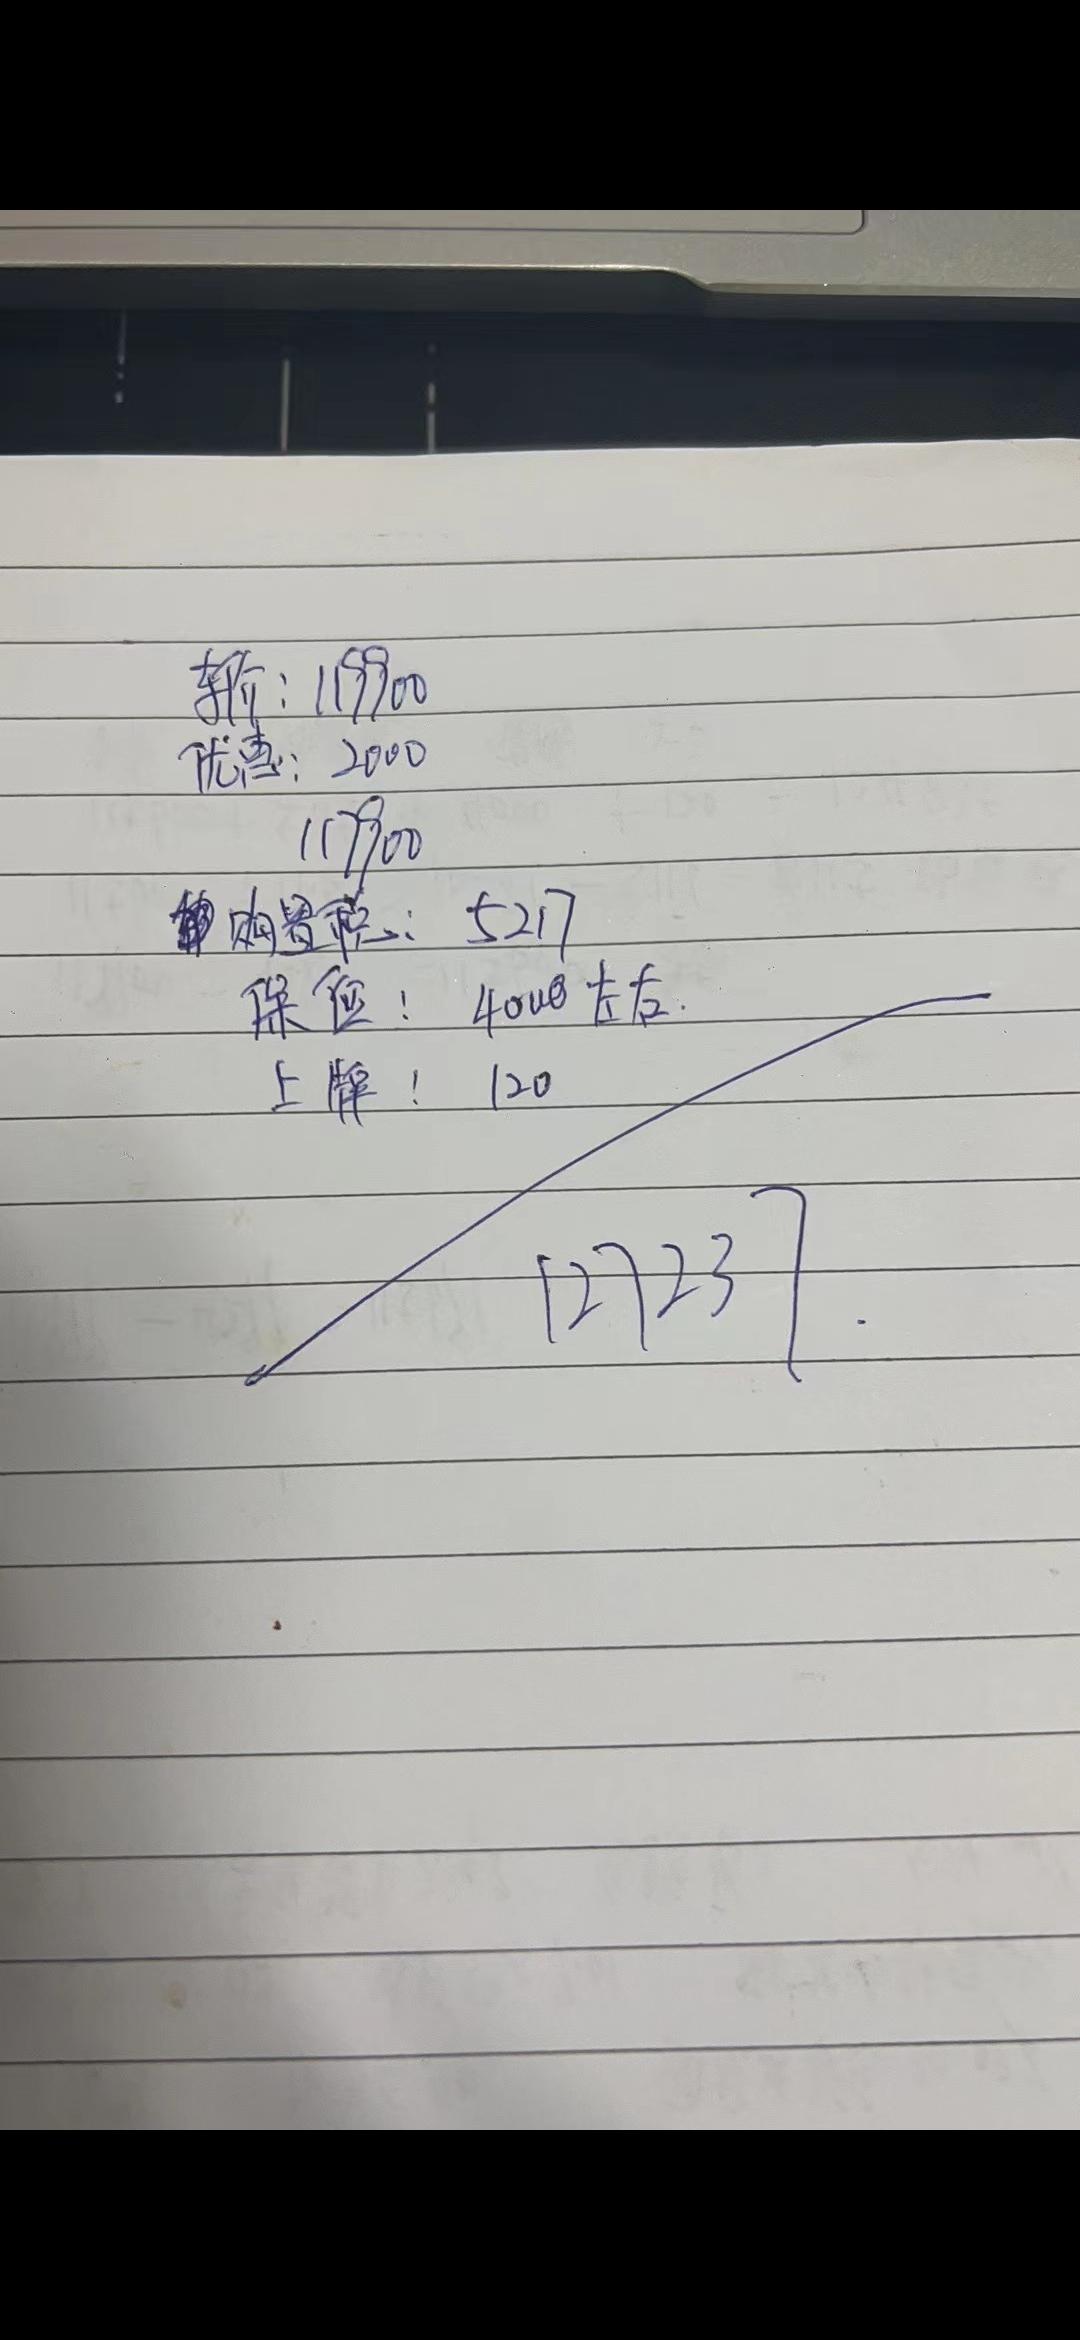 车价：119900
优惠：2000
117900
购置税：5217
保险：4000左右.
上牌：120
127237.